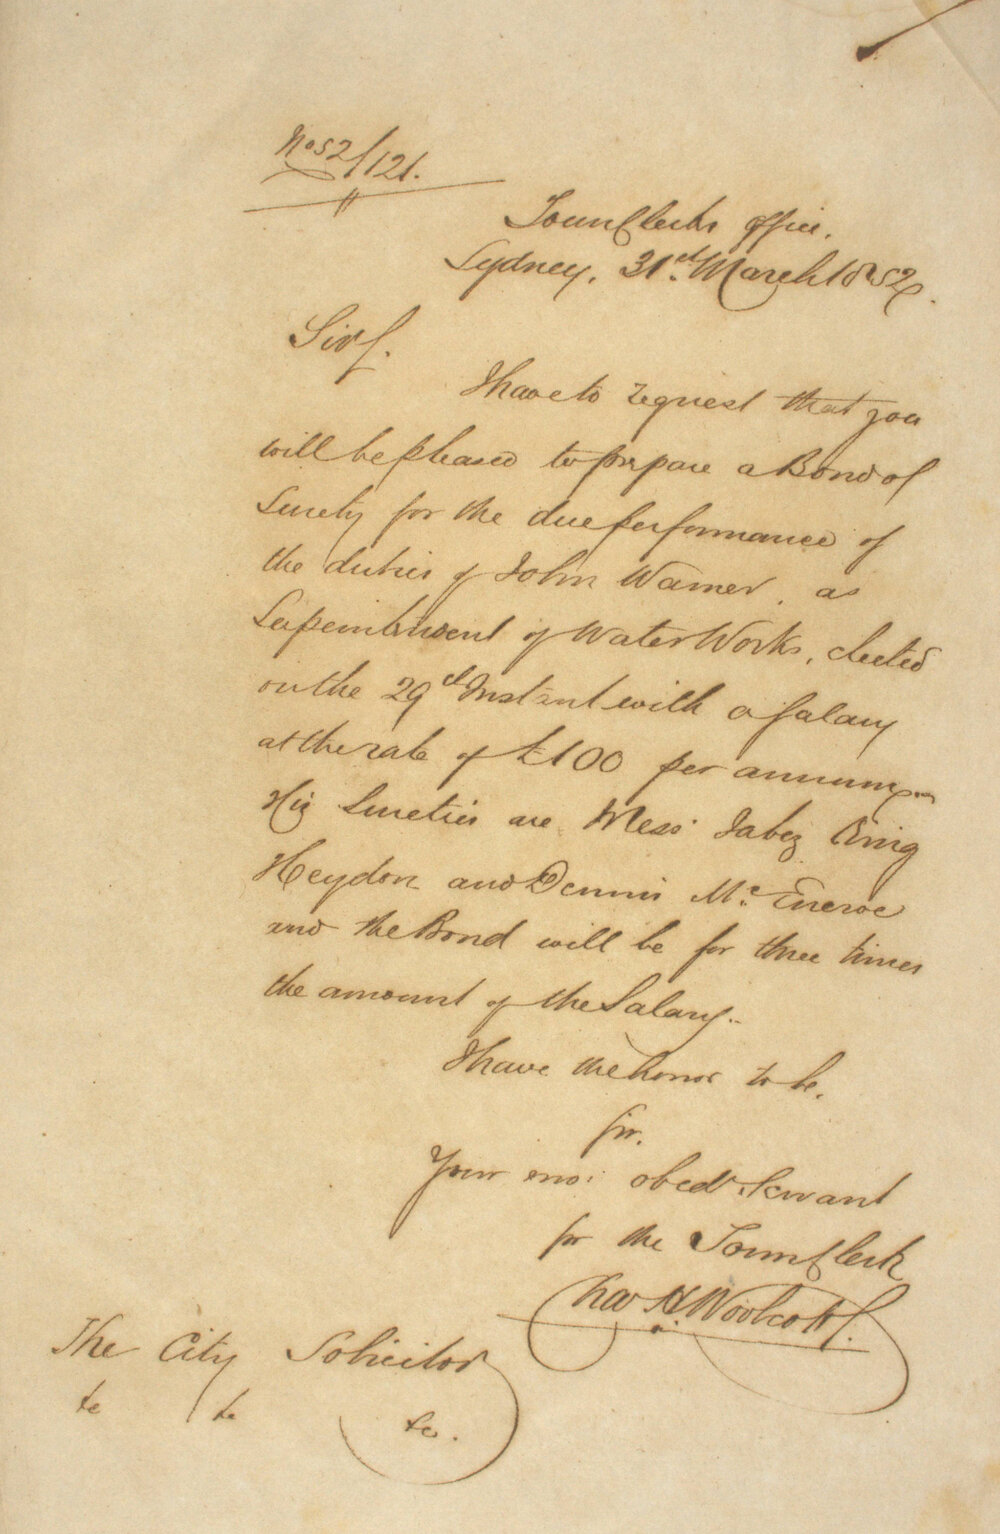 No 52/121.
Town Clerks Office.
Sydney, 31st March 1852.
Sir,
I have to request that you
will be pleased to prepare a Bond of
Surety for the due performance of
the duties of John Warner, as
Superintendent of Water Works, elected
on the 29th Instant with a Salary
at the rate of £100 per annum
His Sureties are Mess: Jabez King
Heydon and Dennis Mc.Encroe
and the Bond will be for three times
the amount of the Salary.-
I have the honor to be,
Sir,
Your mo: obedt. Servant
for the Town Clerk
Chas H. Woolcott.
The City Solicitor
&c &c &c.